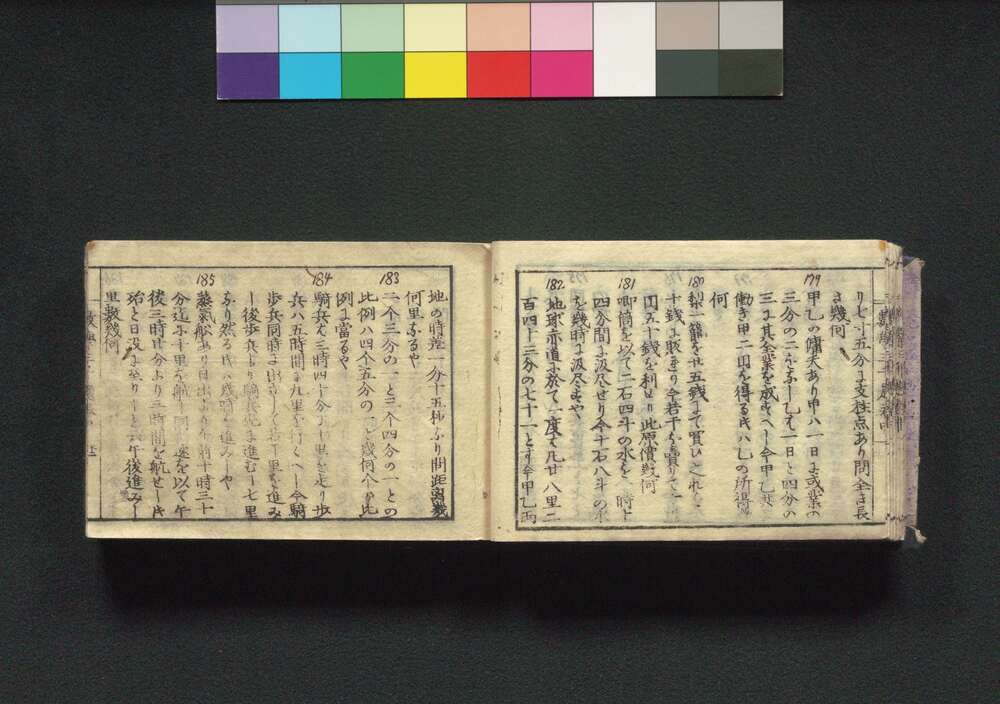 り七寸五分に支柱点あり問全さ長
さ幾何
179
甲乙の傭夫あり甲ハ一日に或業の
三分の二をなし乙も一日と四分の
三に其全業を成すへし今甲乙共
働き甲二円を得る时ハ乙の所得
何
180
梨一籠を廿五銭にて買ひ
十銭に販
円五十銭を利せり此原價幾何
181
喞筒を以て二石四斗の水を一時十
四分間に汲尽せり今十石八斗の水
を幾時に汲尽すや
182
地球赤道に於て一度は凡廿八里二
百四十三分の七十一とす今甲乙両
地の時差一分十五秒なり問距離幾
何里なるや
183
二个三分の一と三个四分の一との
此例ハ四个五分の一と幾何个の比
例に當るや
184
騎兵は三時四十分に十里を走り歩
兵ハ五時間に九里を行くへし今騎
歩兵同時に出し若干里を進み
し後歩兵より騎兵他に進む一七里
なり然る时は幾時を進みしや
185
蒸氣舩あり日出より午前十時三十
分迄に十里を航し同速を以て午
後三時廿分より三時間を航せし时
殆と日没に至りしと云午後進みし
里数幾何